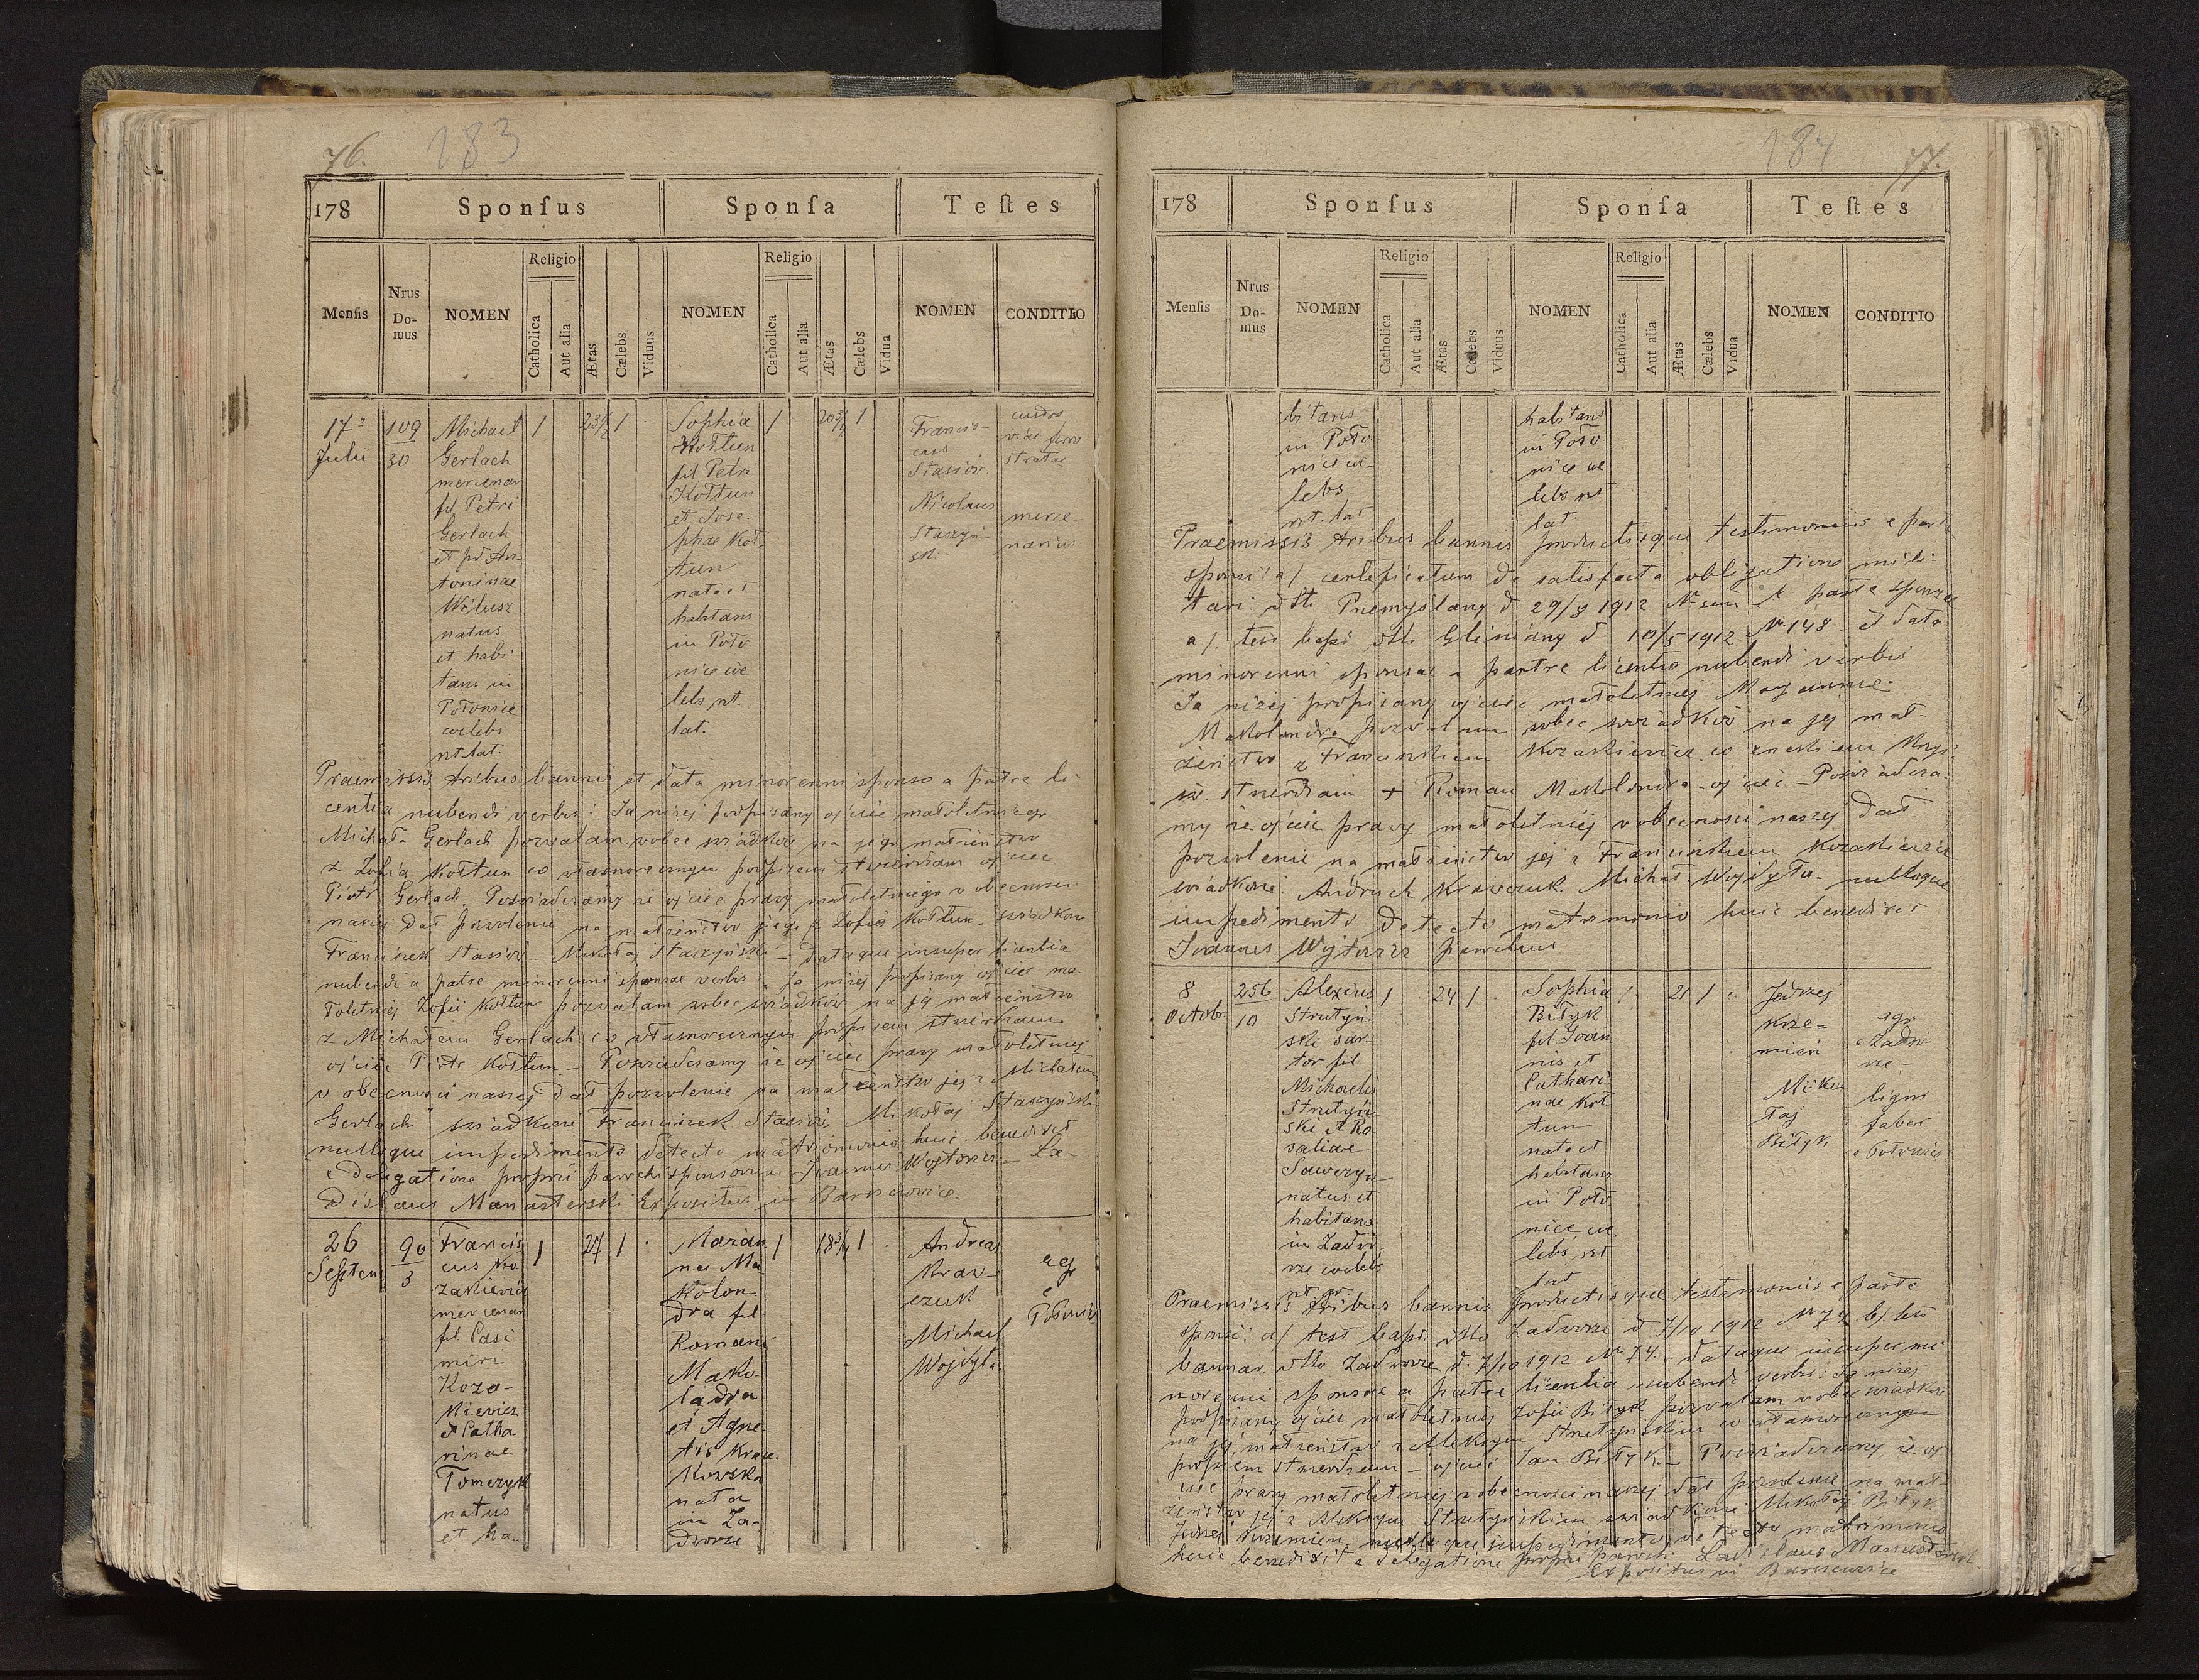 76.
183
178
Sponſus
Sponſa
Teſtes
Menſis
Nrus Do-mus
NOMEN
Religio
Catholica
Aut alia
Ætas
Cælebs
Viduus
NOMEN
Religio
Catholica
Aut alia
Ætas
Cælebs
Vidua
NOMEN
CONDITIO
17a
Julii
109
30
Michael
Gerlach
mercenar
fil Petri
Gerlach
et
toninae
Witusz
natus
et habi
tans in
Połonice
coelebs
rt lat.
1
23 1/2
1
Sophia
Kołtun
fil Petri
Kołtun
et Jose
phae Koł
tun
nata et
habitans
in Poło
nice coe
lebs rt.
lat.
1
1
Francis-
cus
Stasiów
Nicolaus
Staszyń
ski
custos
viae ferro
stratae
merce-
narius
Praemissis tribus bannis et data minorenni sponso a patre li-
centia nubendi verbis: Ja niżej podpisany ojciec małoletniego
Michał Gerlach pozwalam wobec świadków na jego małżeństwo
z Zofią Kołtun co własnoręcznym podpisem stwierdzam ojciec
Piotr Gerlach. Poświadczamy że ojciec prawy małoletniego w obecności
naszej dał pozwolenie na małżeństwo jego z Zofią Kołtun. świadkowie
Franciszek Stasiów - Mikołaj Staszyński - dataque insuper licentia
nubendi a patre minorenni sponsae verbis: Ja niżej podpisany ojciec ma-
łoletniej Zofii Kołtun pozwalam wobec świadków na jej małżeństwo
z Michałem Gerlach co własnoręcznym podpisem stwierdzam
ojciec Piotr Kołtun. - Poświadczamy że ojciec prawy małoletniej
w obecności naszej dał pozwolenie na małżeństwo jej z Michałem
Gerlach świadkowie Franciszek Stasiów, Mikołaj Staszyński
nulloque impedimento detecto matrimonio huic benedixit
e delegatione proprii parochi sponsorum Joannis Wojtowicz - La-
dislaus Manasterski Expositus in Barszczowice.
26
Septem
90
3
Francis
cus Ko
zakiewicz
mercenar
fil. Casi
miri
Koza-
kiewicz
et Catha
rinae
Tomczyk
natus
et ha-
1
27
1
Marian
na Ma
kolon-
dra fil
Romani
Mako-
lądra
et Agne-
tis Kracz
kowska
nata
in Za-
dwórze
1
18 3/4
1
Andreas
Kraw-
czuk
Michael
Wojdyła
agr
e
Połonice
184
77.
178
Sponſus
Sponſa
Teſtes
Menſis
Nrus Do-mus
NOMEN
Religio
Catholica
Aut alia
Ætas
Cælebs
Viduus
NOMEN
Religio
Catholica
Aut alia
Ætas
Cælebs
Vidua
NOMEN
CONDITIO
bitans
in Poło
nice coe-
lebs
rt. lat
habitans
in Poło
nice coe
lebs rt
lat.
Praemissis tribus bannis productisque testimoniis e parte
sponsi: a/ certificatum de satisfacta obligatione mili-
tari dtto Przemyślany d. 1912 e parte sponsae
a/. test bapt dtto Gliniany d. 1912 № 148 et data
minorenni sponsae a patre licentia nubendi verbis
Ja niżej podpisany ojciec małoletniej Maryanny
Makolondra pozwalam wobec świadków na jej mał-
żeństwo z Franciszkiem Kozakiewicz co znakiem krzyża
św. stwierdzam + Roman Makolondra - ojciec - Poświadcza-
my że ojciec prawy małoletniej w obecności naszej dał
pozwolenie na małżeństwo jej z Franciszkiem Kozakiewicz
świadkowie: Andruch Krawczuk. Michał Wojdyła - nulloque
impedimento detecto matrimonio huic benedixit
Joannes Wojtowicz parochus
8
Octobr
256
10
Alexius
Strutyń-
ski sar-
tor fil
Michaelis
Strutyń-
ski et Ro
saliae
Sawczyn
natus et
habitans
in Zadwó
rze coelebs
rt. gr.
1
24
1
Sophia
Biłyk
fil Joan
nis et
Cathari
nae Koł
tun
nata et
habitans
in Poło
nice, coe
lebs, rt
lat
1
21
1
Jędrzej
Krze-
mień
Miko
łaj
Biłyk
agr
e Zadwó-
rze -
ligni
faber
e Połonice
Praemissis tribus bannis productisque testimoniis e parte
sponsi: a/ test bapt. dtto Zadwórze d 7/10 1912 № 74 b/. test
bannor. dtto Zadwórze d. 7/10 1912 № 74. - dataque insuper mi-
norenni sponsae a patre licentia nubendi verbis: Ja niżej
podpisany ojciec małoletniej Zofii Biłyk pozwalam wobec świadków
na jej małżeństwo z Aleksym Strutyńskim co własnoręcznym
podpisem stwierdzam - ojciec Jan Biłyk. - Poświadczamy, że oj-
ciec prawy małoletniej w obecności naszej dał pozwolenie na mał-
żeństwo jej z Aleksym Strutyńskim świadkowie: Mikołaj Biłyk
Jędrzej Krzemień nulloque impedimento detecto matrimonio
huic benedixit e delegatione proprii parochi Ladislaus Manasterski
Expositus in Barszczowice